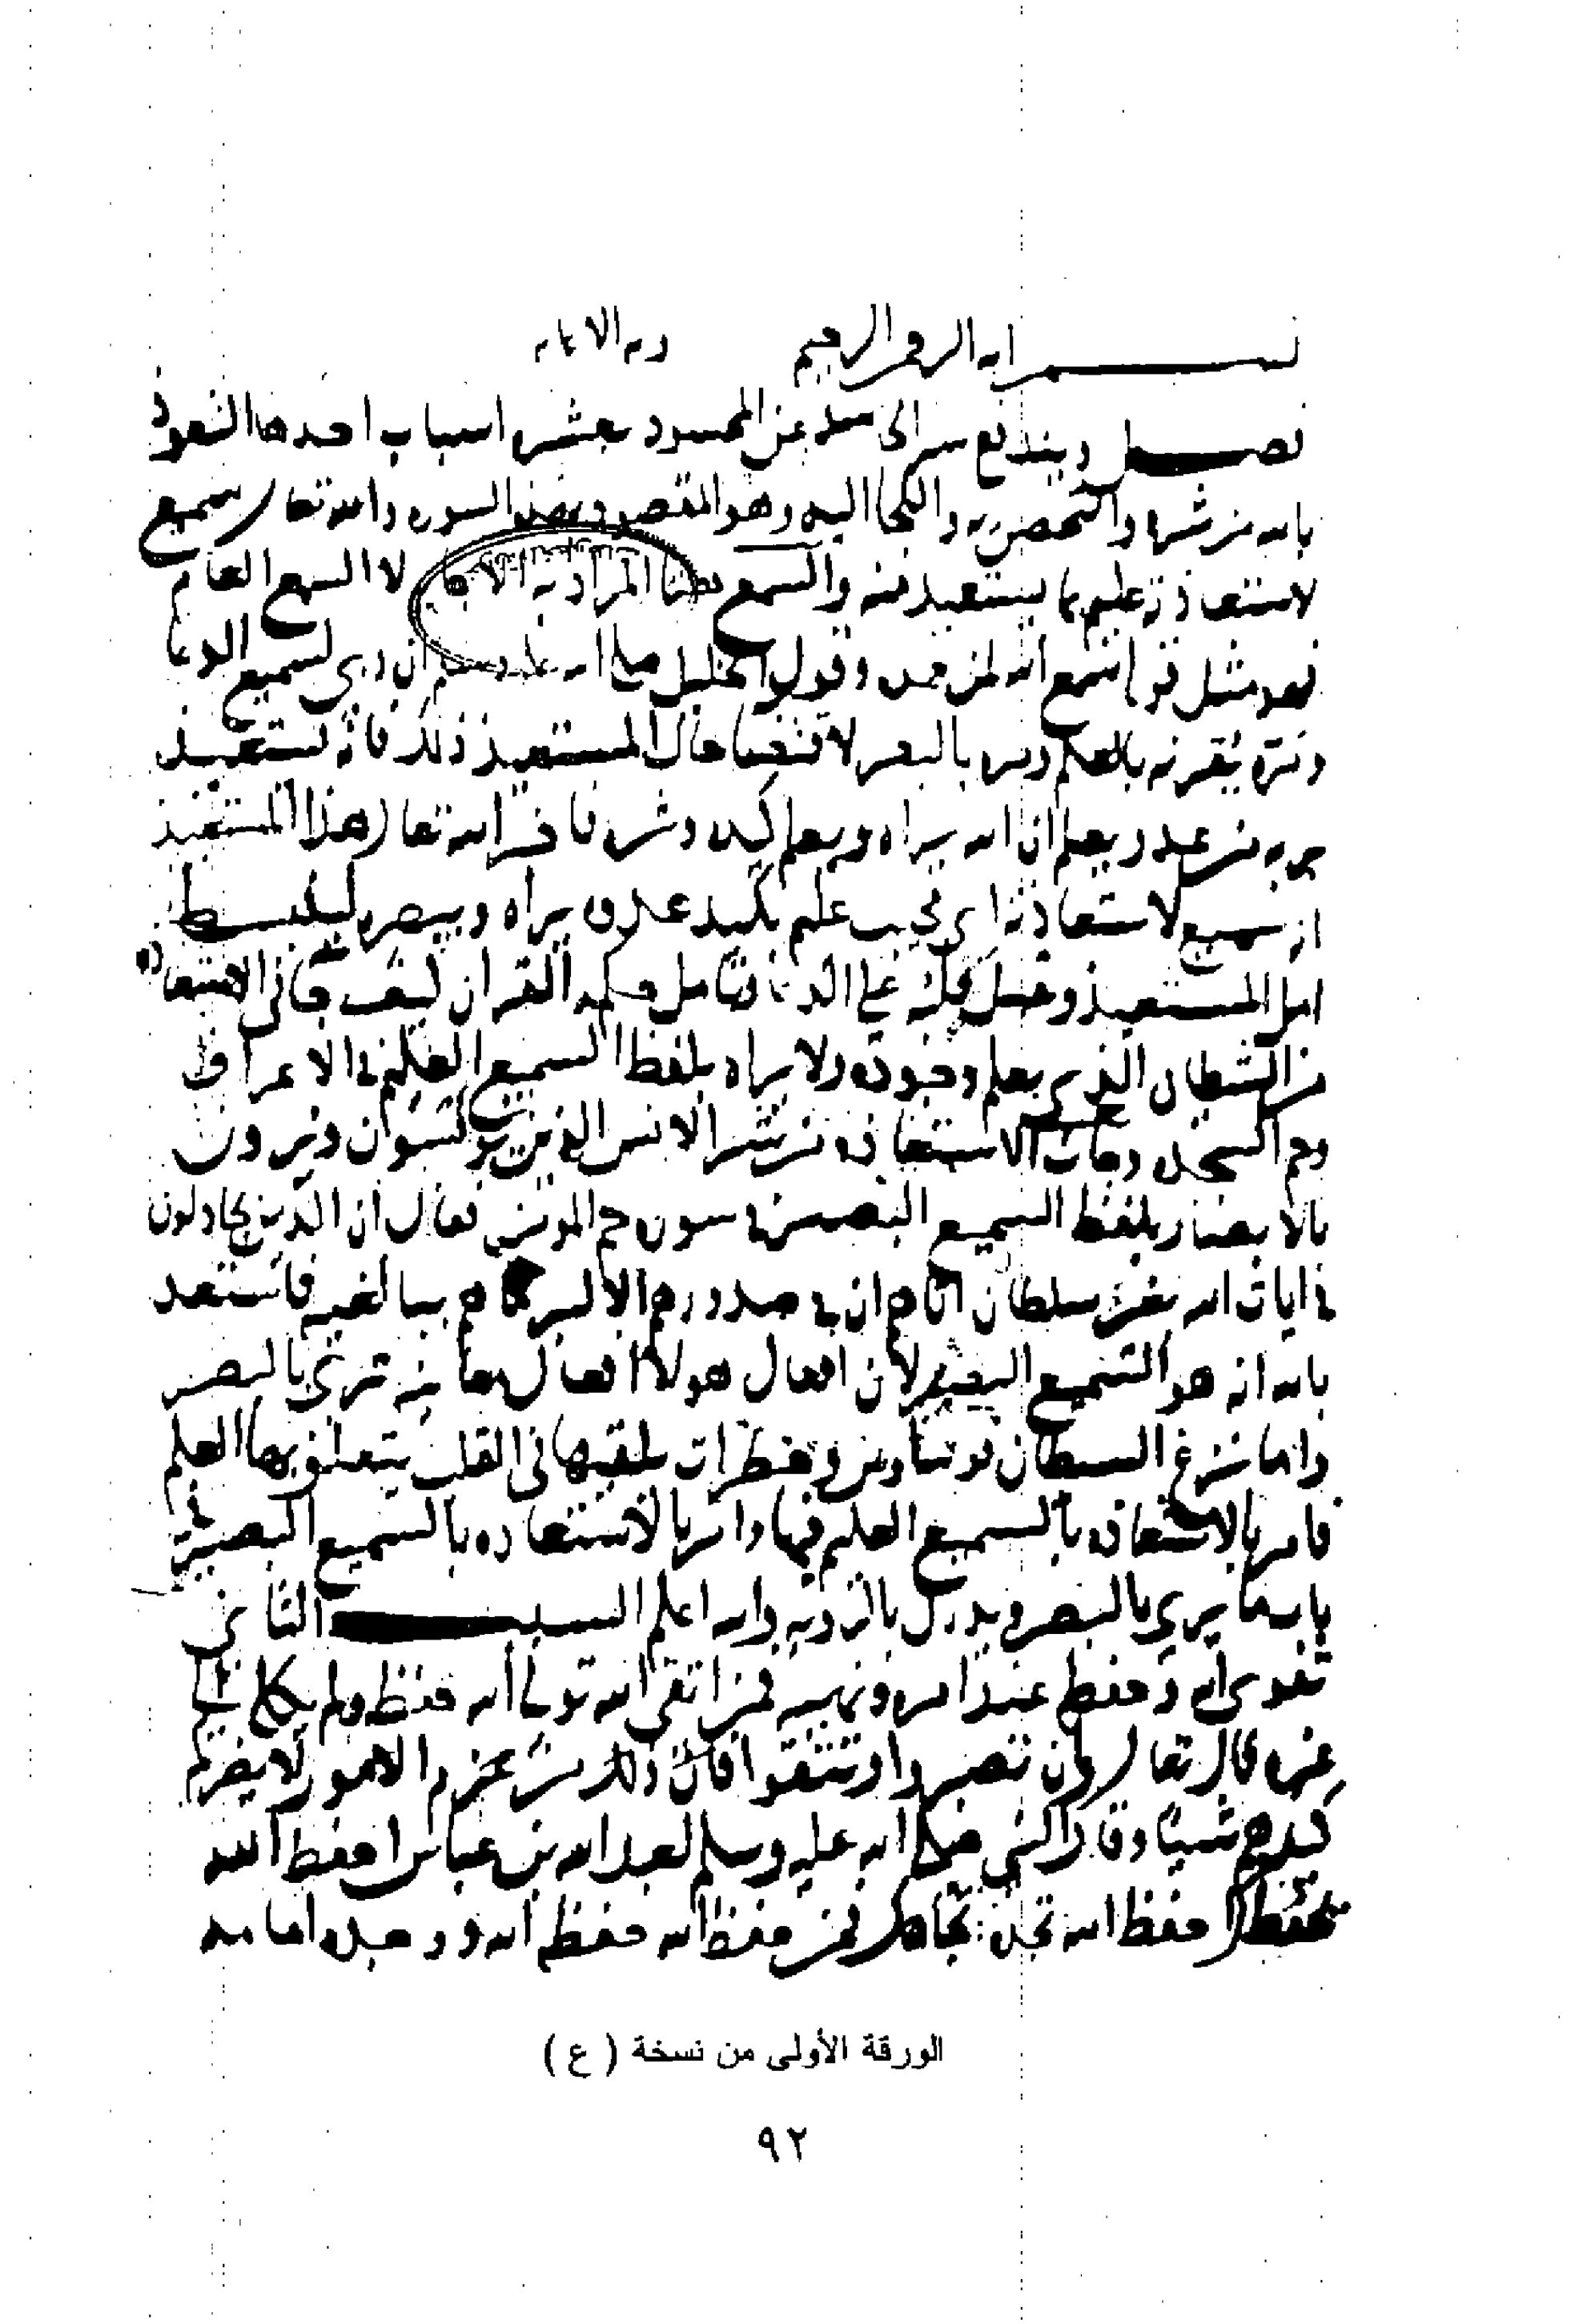 بسم الله الرحمن الرحيم وبه الاعانه
فصل ويندفع شر الحاسد عن المحسود بعشره اسباب احدها التعوذ
بالله من شره والتحصن به والتجا اليه وهو المقصود بهذه السوره والله تعالى سميع
لاستعاذته عليم بما يستعيذ منه والسمع هنا المراد به الاجابه لا السمع العام
فهو مثل قوله سمع الله لمن حمده وقول الخليل صلى الله عليه وسلم ان ربي لسميع الدعا
ومره يقرنه بالعلم ومره بالبصر لاقتضا حال المستعيذ ذلك فانه يستعيذ
به من عدو يعلم ان الله يراه ويعلم كيده وشره فاخبر الله تعالى هذا المستعيذ
انه سميع لاستعاذته اي مجيب عليم بكيد عدوه يراه ويبصره لينبسط
امل المستعيذ ويقبل بقلبه على الدعا وتامل حكمه القران كيف جا في الاستعاذه
من الشيطان الذي يعلم وجوده ولا يراه بلفظ السميع العليم في الاعراف
وحم السجده وجات الاستعاذه من شر الانس الذين يونسون ويرون
بالابصار بلفظ السميع البصير في سوره حم المومن فقال ان الذين يجادلون
في ايات الله بغير سلطان اتاهم ان في صدورهم الا كبر ما هم ببالغيه فاستعذ
بالله انه هو السميع البصير لان افعال هولا افعال معاينه ترى بالبصر
واما نزغ الشيطان فوساوس وخطرات يلقيها في القلب يتعلق بها العلم
فامر بالاستعاذه بالسميع العليم فيها وامر بالاستعاذه بالسميع البصير في
باب ما يرى بالبصر ويدرك بالرويه والله اعلم السبب الثاني
تقوى الله وحفظه عند امره ونهيه فمن اتقى الله تولى الله حفظه ولم يكله الى
غيره قال تعالى وان تصبروا وتتقوا فان ذلك من عزم الامور لا يضركم
كيدهم شيئا وقال النبي صلى الله عليه وسلم لعبد الله بن عباس احفظ الله
يحفظك احفظ الله تجده تجاهك فمن حفظ الله حفظه الله ووجده امامه
الورقة الأولى من نسخة ( ع )
٩٢